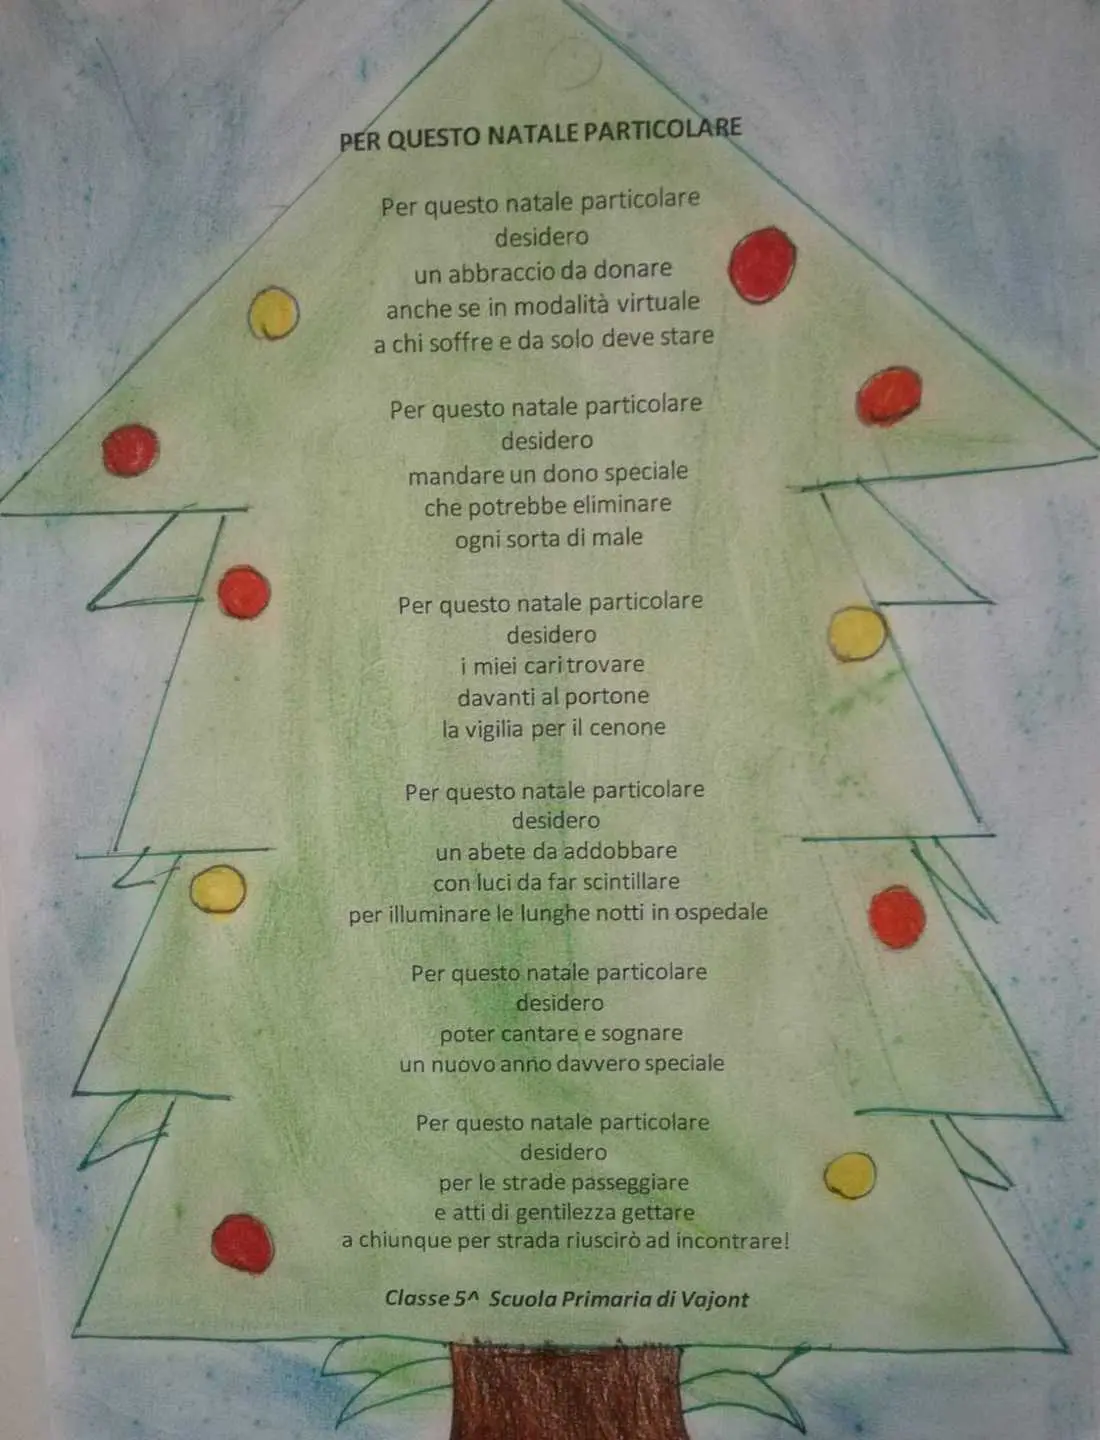 PER QUESTO NATALE PARTICOLARE
Per questo natale particolare
desidero
un abbraccio da donare
anche se in modalità virtuale
a chi soffre e da solo deve stare
Per questo natale particolare
desidero
mandare un dono speciale
che potrebbe eliminare
ogni sorta di male
Per questo natale particolare
desidero
i miei cari trovare
davanti al portone
la vigilia per il cenone
Per questo natale particolare
desidero
un abete da addobbare
con luci da far scintillare
per illuminare le lunghe notti in ospedale
Per questo natale particolare
desidero
poter cantare e sognare
un nuovo anno davvero speciale
Per questo natale particolare
desidero
per le strade passeggiare
e atti di gentilezza gettare
a chiunque per strada riuscirò ad incontrare!
Classe 5^ Scuola Primaria di Vajont